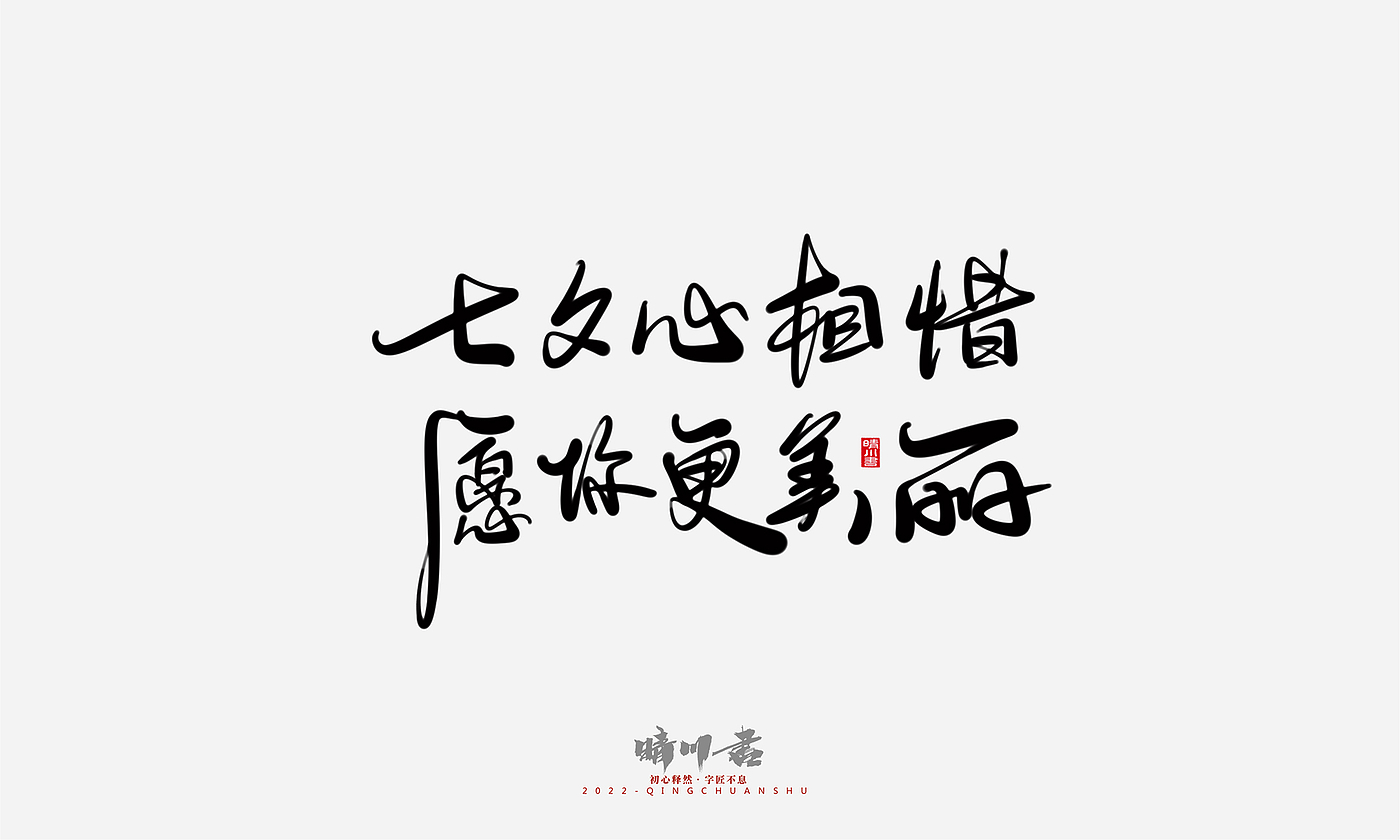 七夕心相惜
愿你更美丽
晴川書
晴川書
初心释然·字匠不息
2022-QINGCHUANSHU